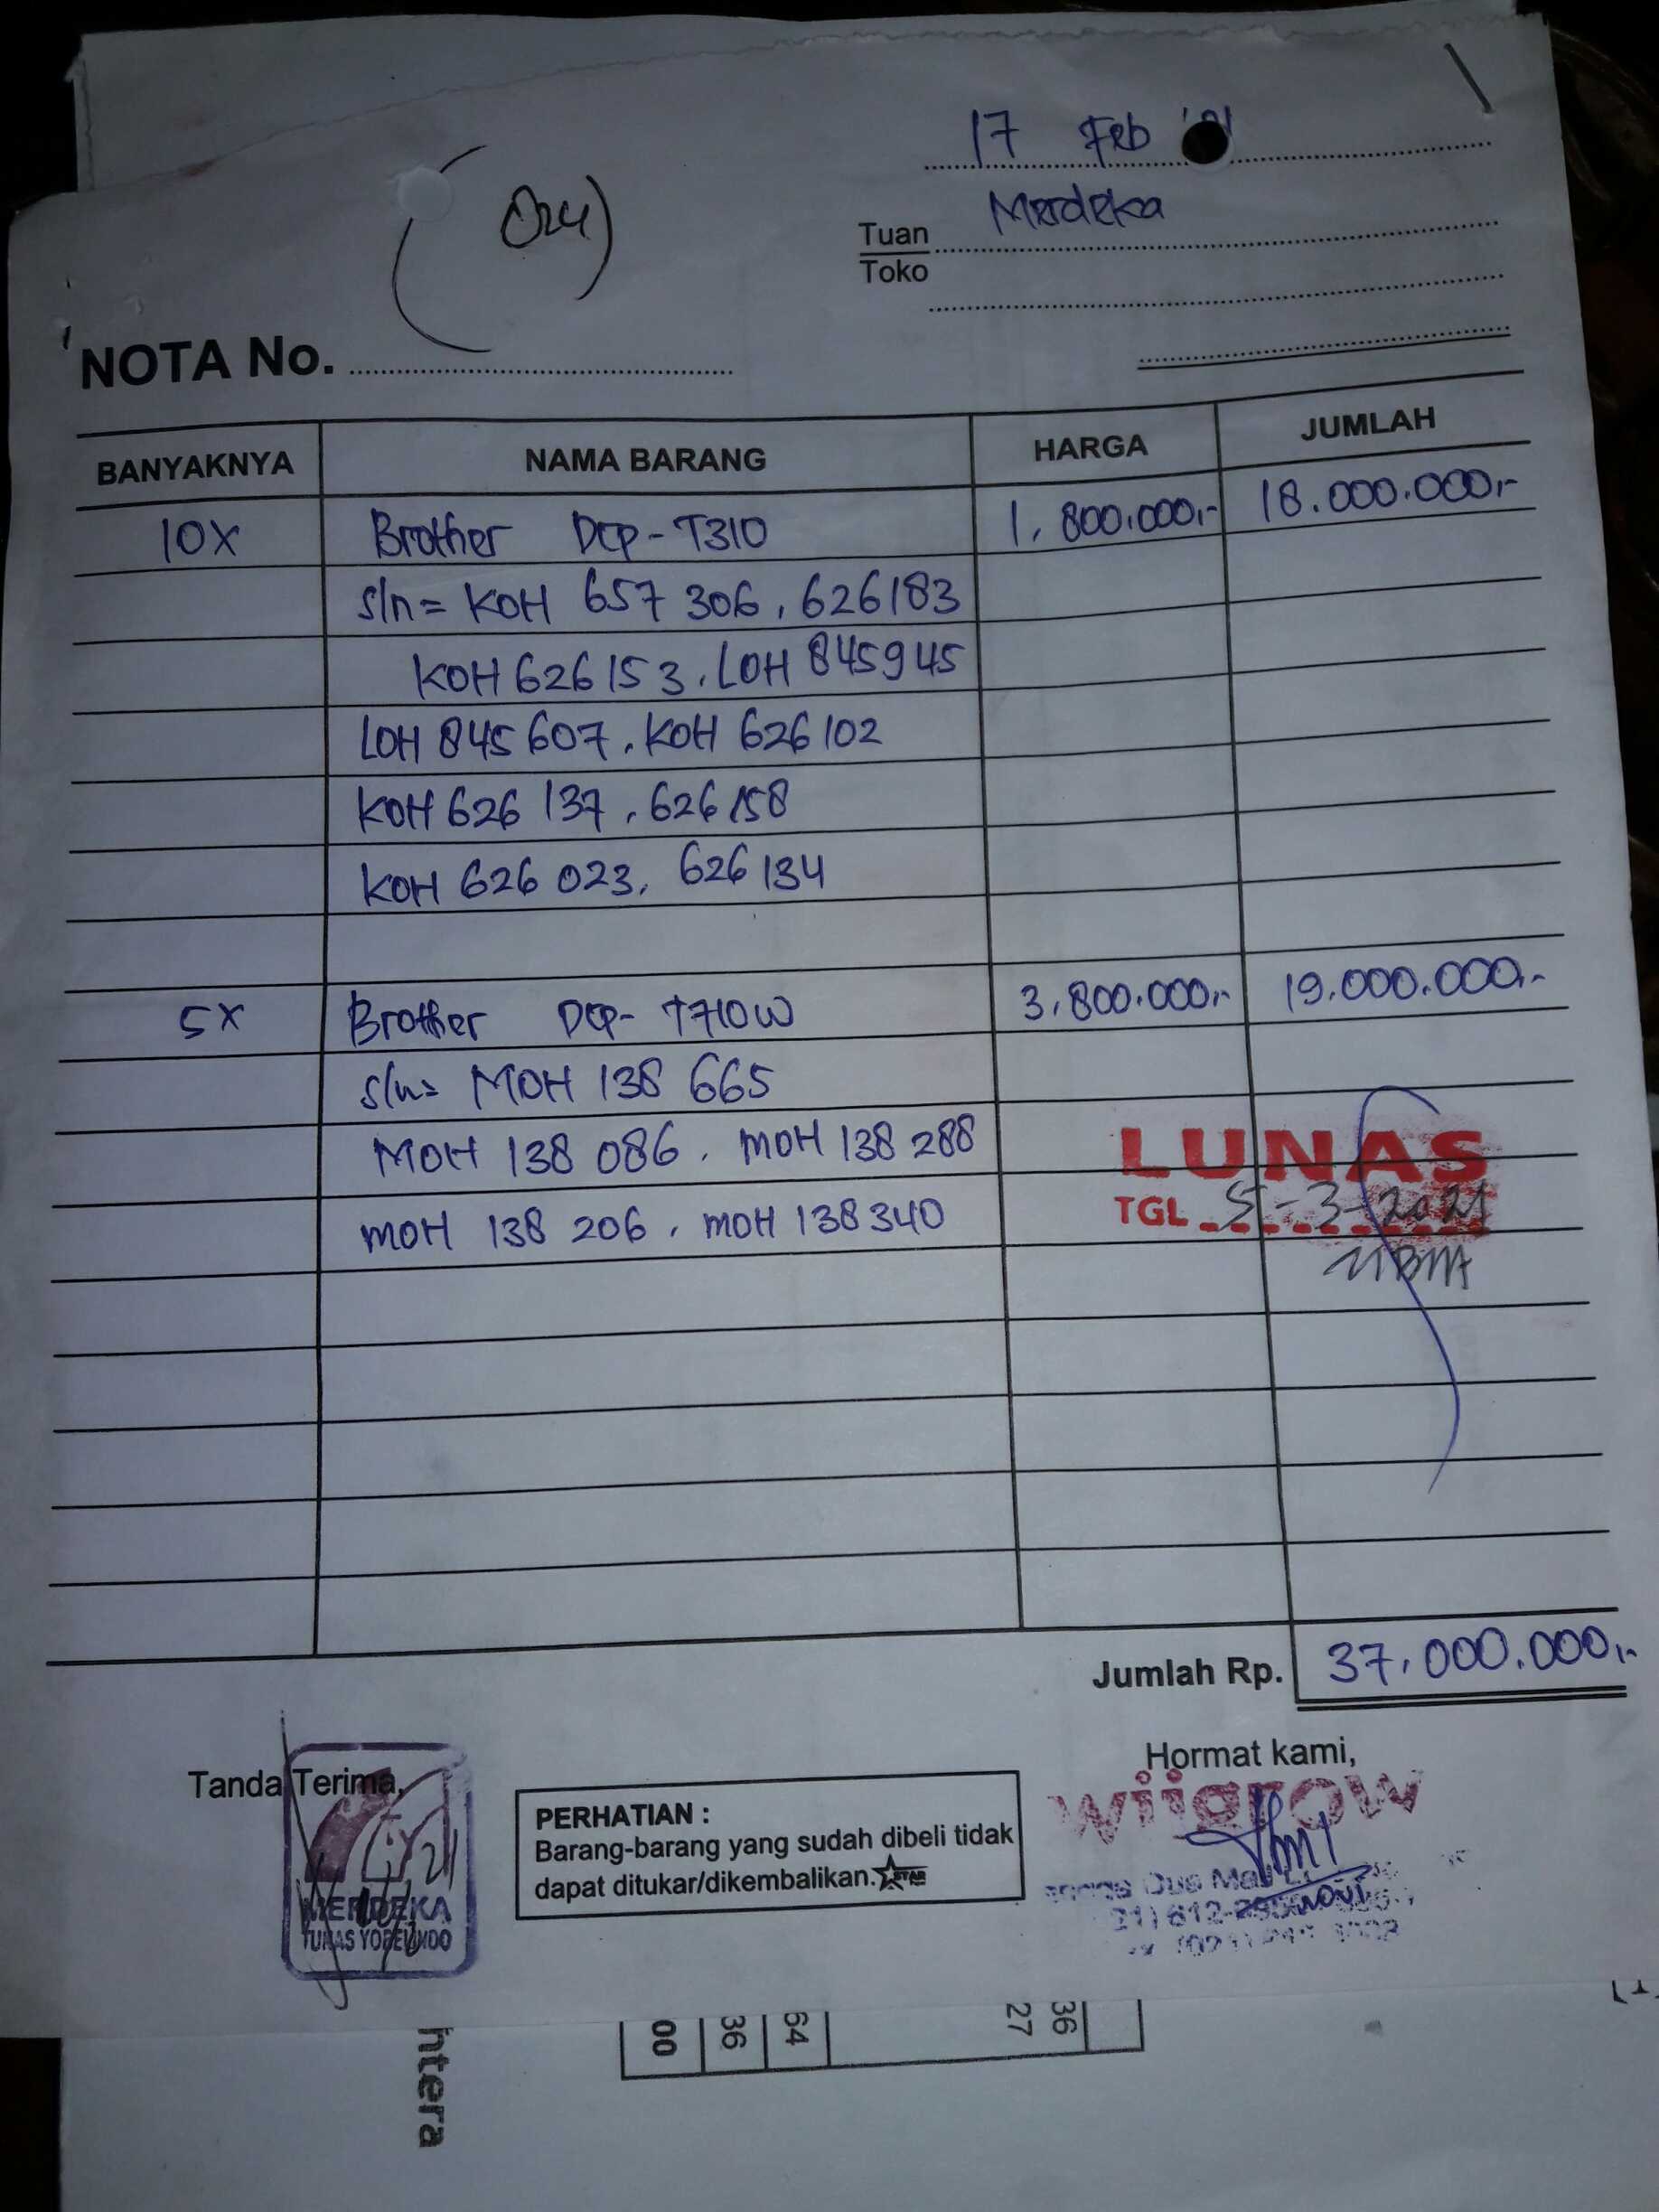 17 Feb '21
(024)
Tuan Merdeka
Toko
NOTA No.
BANYAKNYA NAMA BARANG HARGA JUMLAH
10X Brother DCP-T310 1.800.000,- 18.000.000,-
s/n= KOH 657 306, 626183
KOH 626 153. LOH 845945
LOH 845 607. KOH 626 102
KOH 626 137, 626 158
KOH 626 023, 626 134
5X Brother DCP- T710W 3.800.000,- 19.000.000,-
s/n= MOH 138 665
MOH 138 086. MOH 138 288
MOH 138 206. MOH 138 340
LUNAS
TGL 5-3-2021
Jumlah Rp. 37.000.000,-
Tanda Terima,
Hormat kami,
wiigrow
MERDEKA
PERHATIAN :
Barang-barang yang sudah dibeli tidak
dapat ditukar/dikembalikan. STAR
ntera
00
36
64
27
36